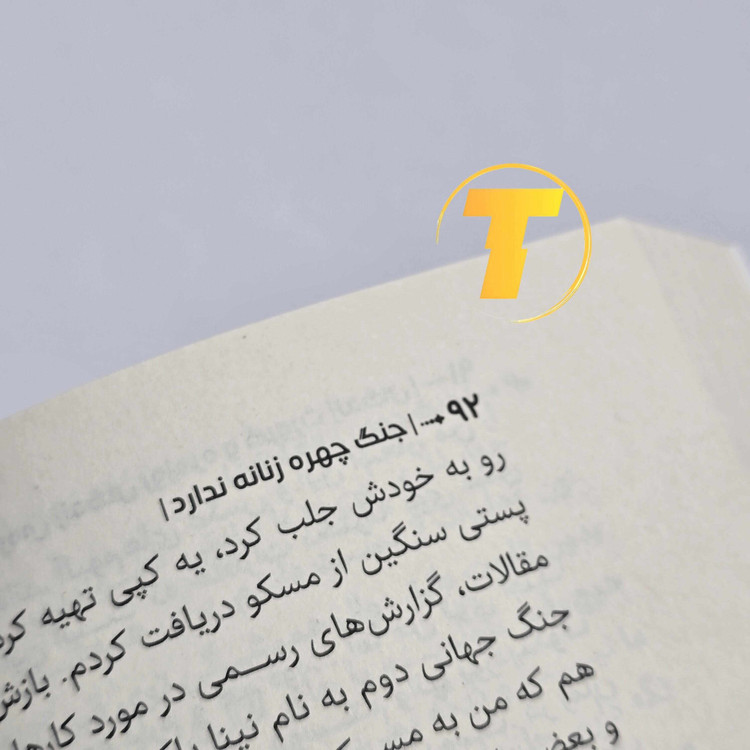 T
۹۲ ⇢ | جنگ چهره زنانه ندارد |
رو به خودش جلب کرد، یه کپی تهیه
پستی سنگین از مسکو دریافت کردم.
مقالات، گزارش‌های رسمی در مورد
جنگ جهانی دوم به نام نینا
هم که من به
و